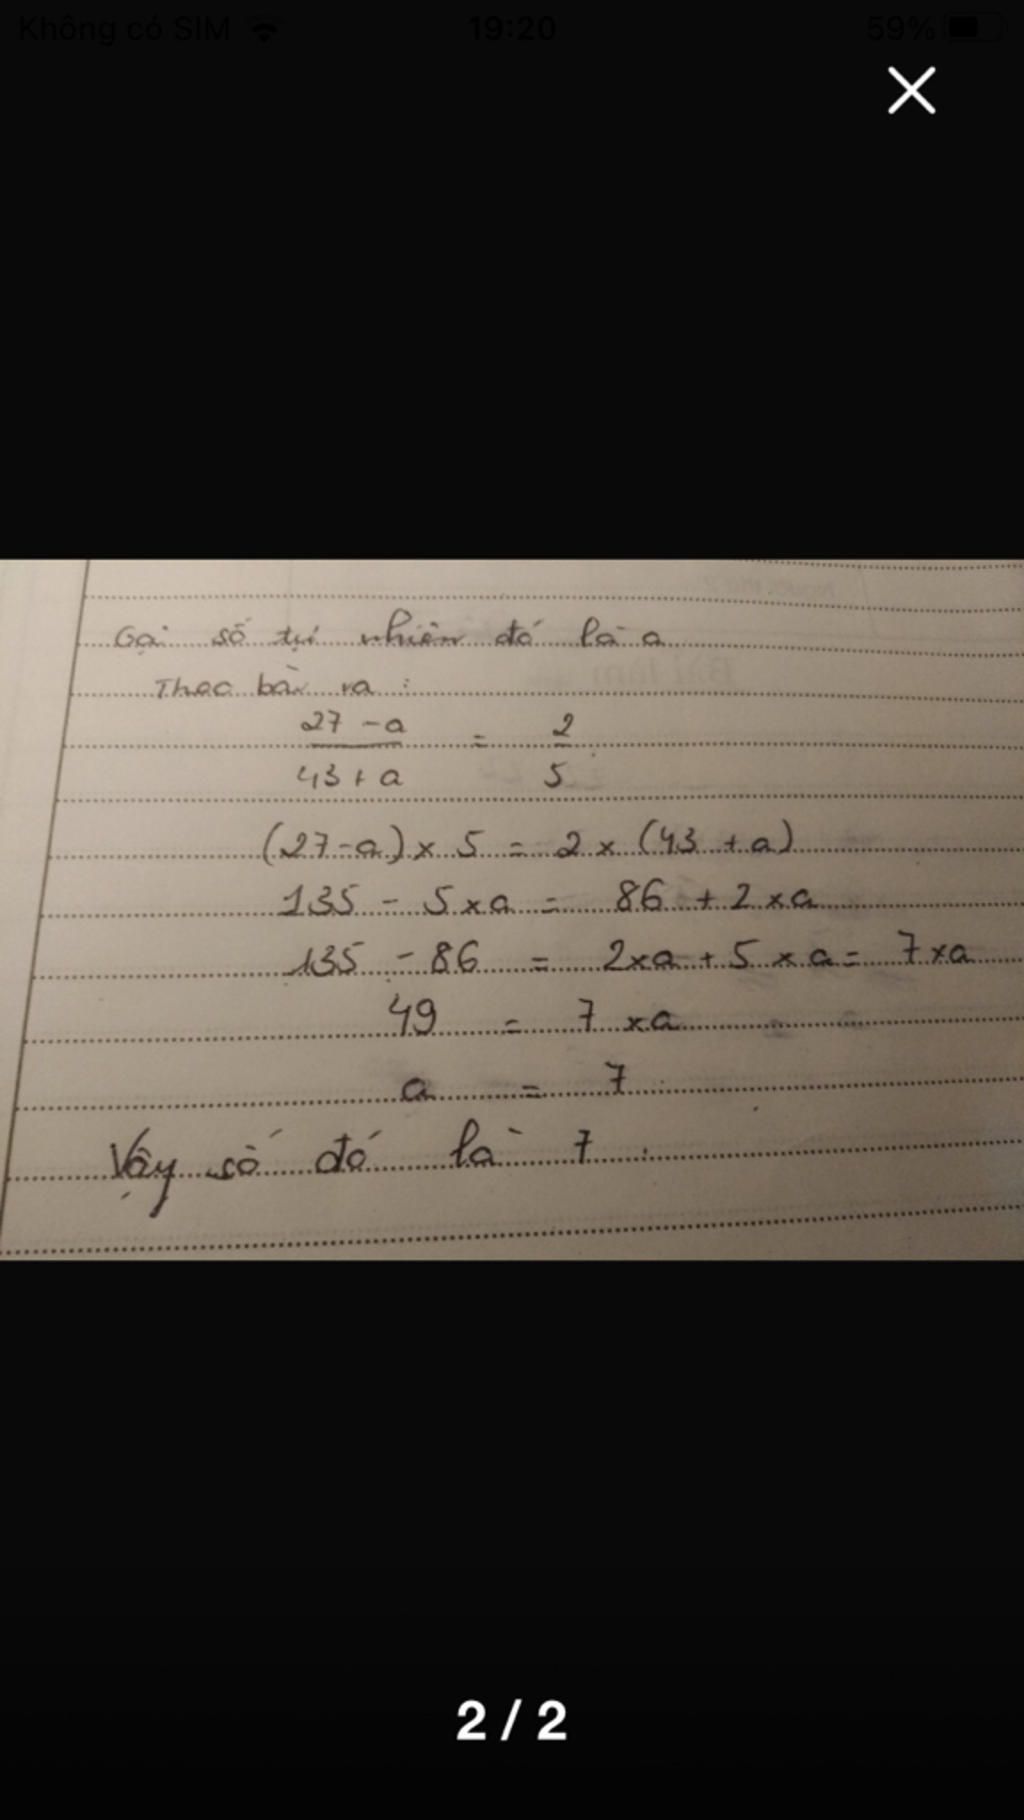 Không có SIM 19:20 59%
Gọi số tự nhiên đó là a
Theo bài ra :
27 - a / 43 + a = 2 / 5
(27 - a) × 5 = 2 × (43 + a)
135 - 5 × a = 86 + 2 × a
135 - 86 = 2 × a + 5 × a = 7 × a
49 = 7 × a
a = 7
Vậy số đó là 7 .
2 / 2